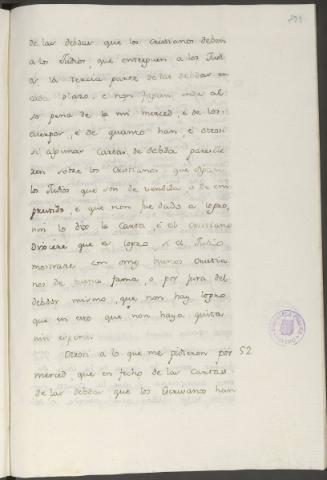 de las debdas que los cristianos deben
a los Judios, que entreguen a los Jud
de la tercia parte de las debdas en
cada plazo, e non fagan ende al
so pena de la mi merced, e de los
cuerpos, e de quanto han, e otrosi
si algunas Cartas de debda parescie
ren sobre los Cristianos que
los Judios que son de vendida, o de em
prestido, e que non fue dado a logro,
nin lo dis la Carta, e el cristiano
dixiere que es logro, si el Judio
mostrare con omes bunos cristia
nos de buena fama, o por jura del
debdor mismo, que non hay logro
que en esto que non haya quita
nin espera.
Otrosi a lo que me pidieron por 52
merced, que en fecho de las Cartas
de las debdas que los Escrivanos han